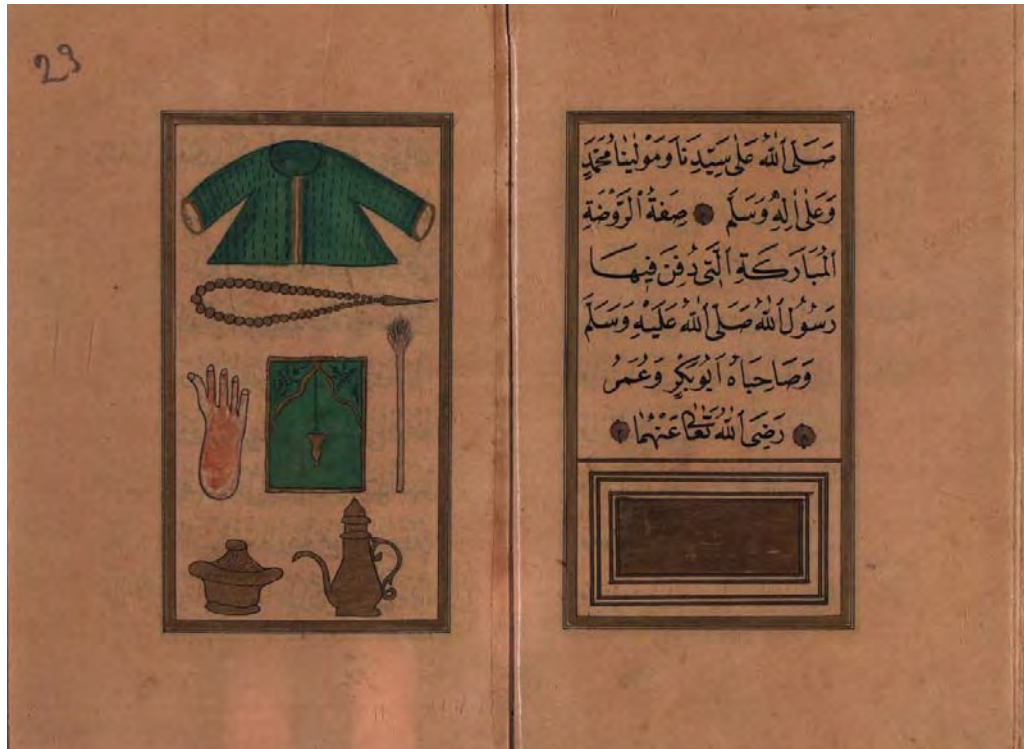 صَلَّى ٱللهُ عَلٰى سَيِّدِنَا وَمَوْلٰينَا مُحَمَّدٍ
وَعَلٰى اٰلِهٖ وَسَلَّمَ صِفَةُ ٱلرَّوْضَةِ
ٱلْمُبَارَكَةِ ٱلَّتِى دُفِنَ فِيهَا
رَسُولُ ٱللهِ صَلَّى ٱللهُ عَلَيْهِ وَسَلَّمَ
وَصَاحِبَاهُ اَبُوبَكْرٍ وَعُمَرُ
رَضِىَ ٱللهُ تَعَالٰى عَنْهُمَا
23